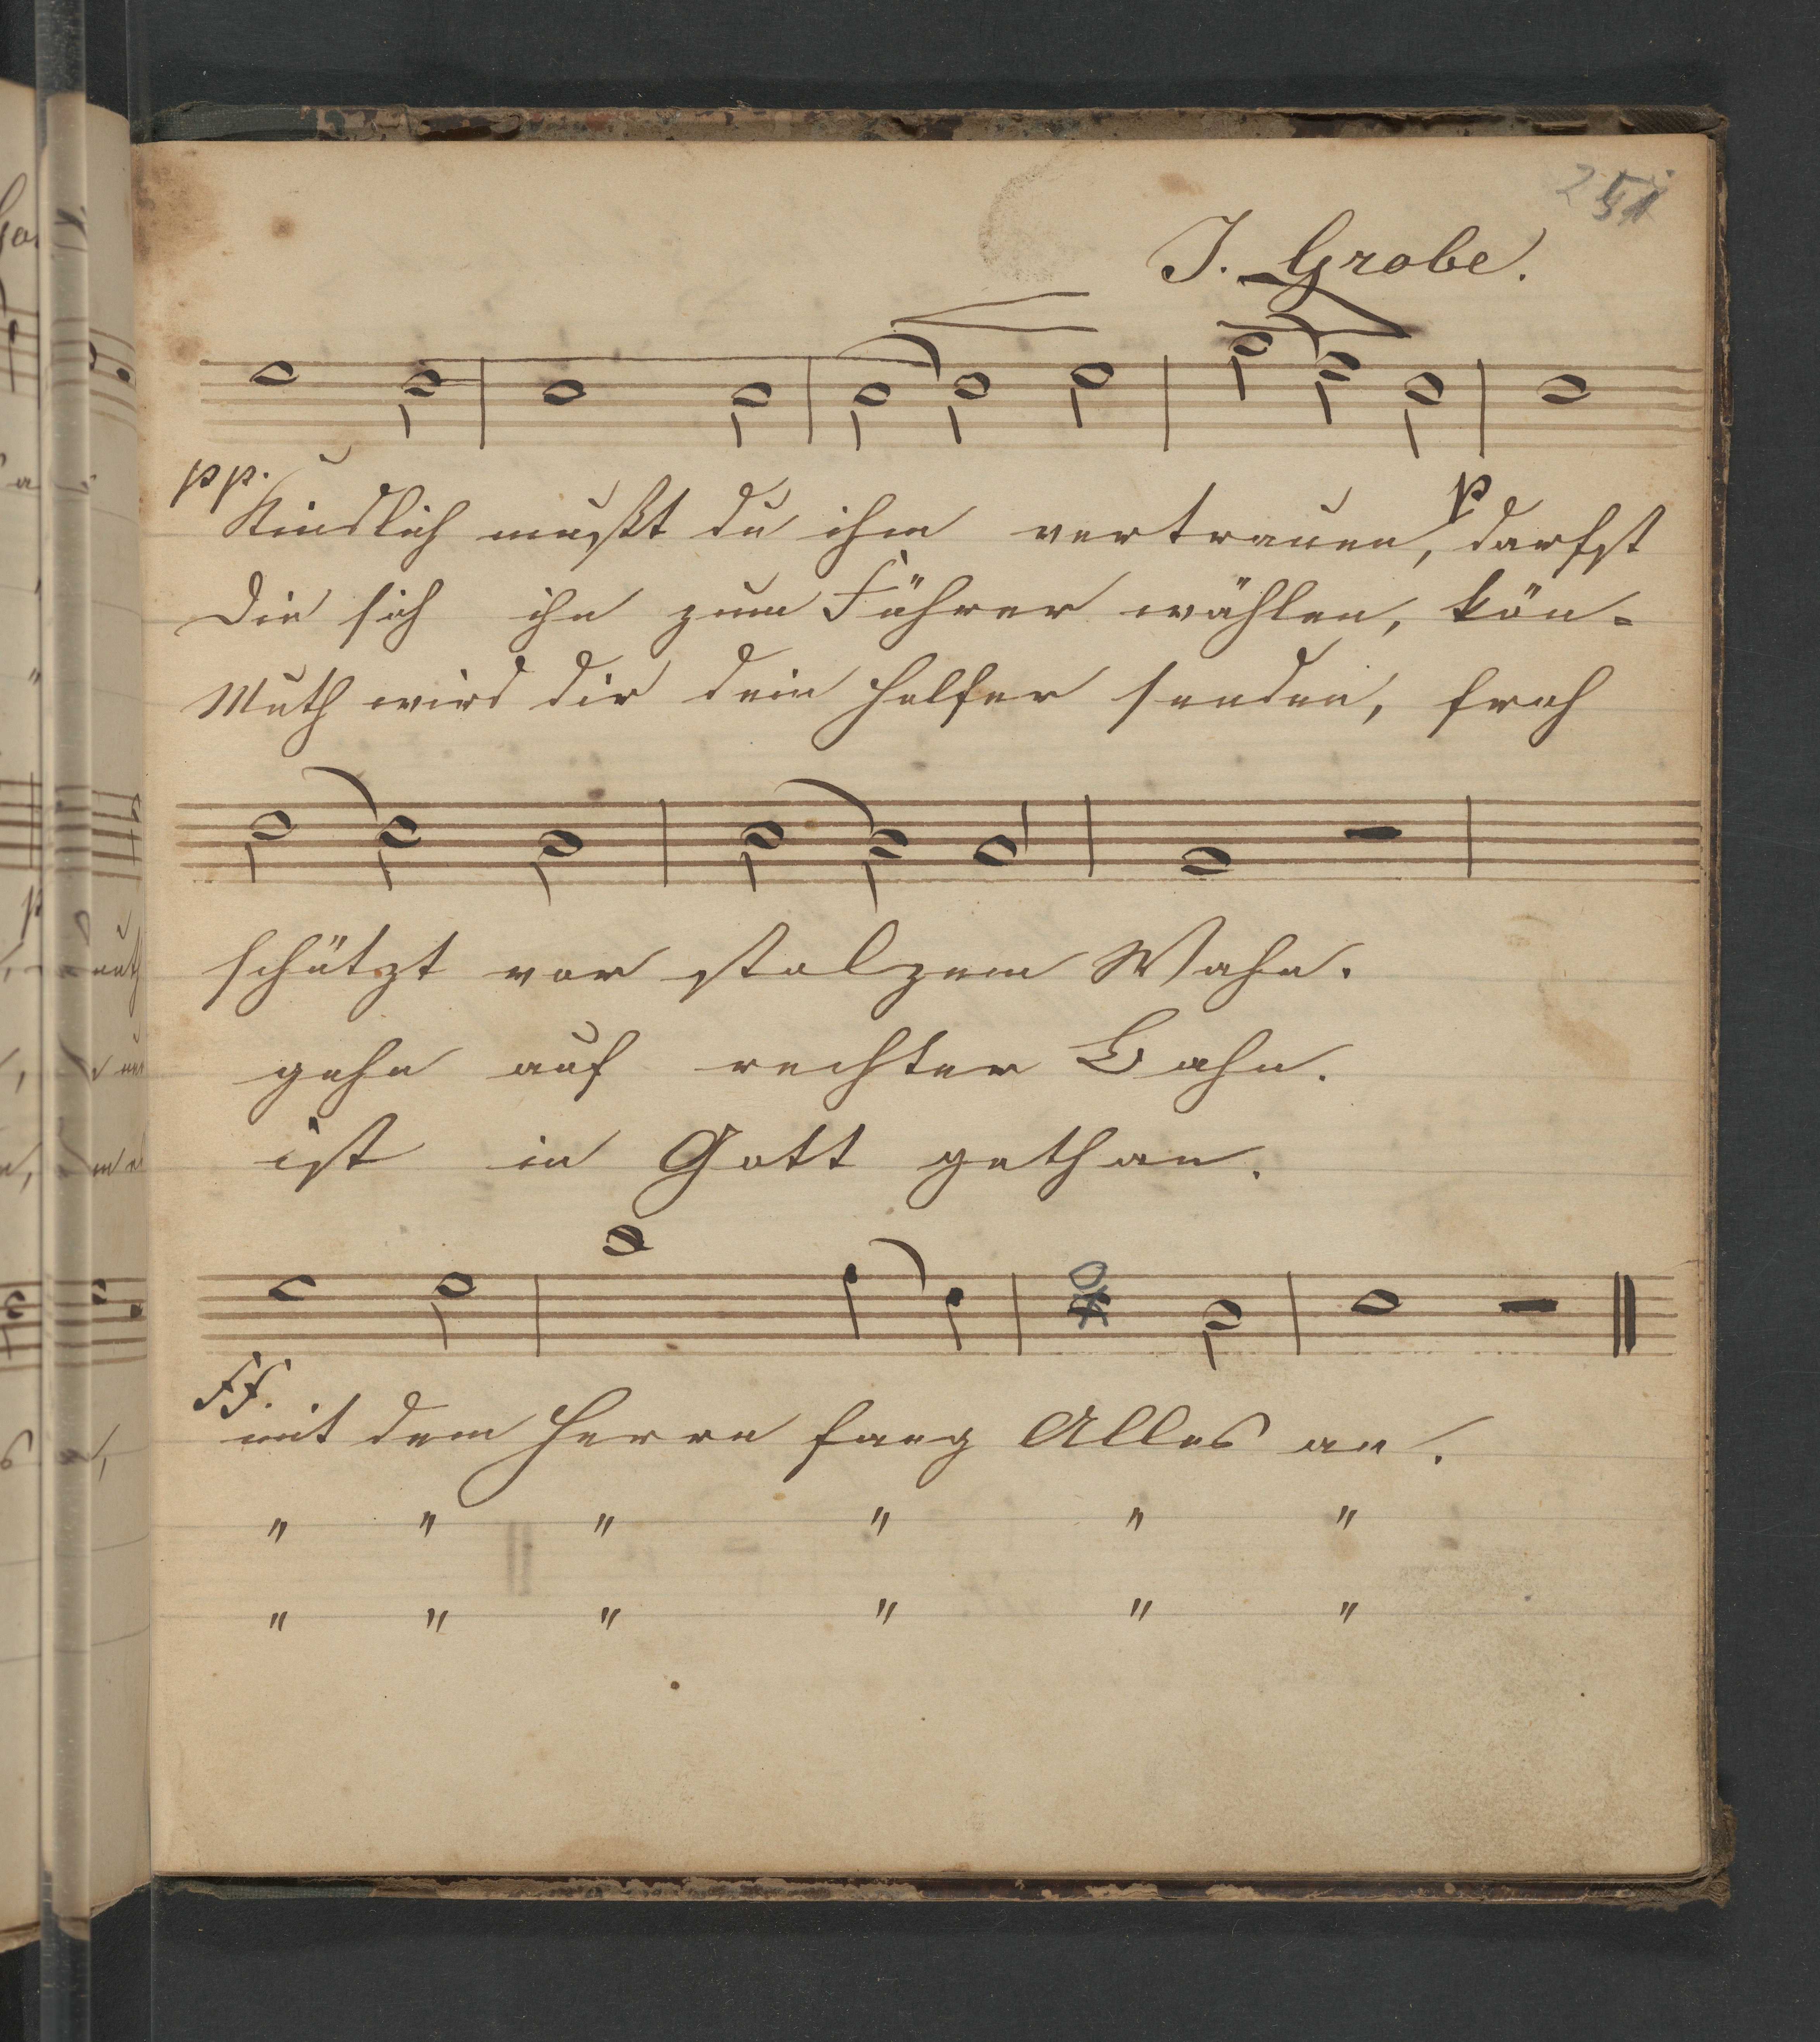 251
J. Grobe.
pp.
p
Kindlich mußt du ihm vertrauen, darfst
Die sich ihn zum Führer wählen, kön-
Muth wird dir dein Helfer senden, froh
schützt vor stolzem Wahn.
gehn auf rechter Bahn.
ist in Gott gethan.
ff.
mit dem Herrn fang Alles an.
" " " " " "
" " " " " "